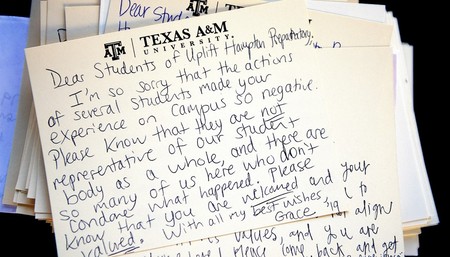 Dear Stud
TEXAS A&M
UNIVERSITY
Dear Students of Uplift Hampton Preparatory,
I'm so sorry that the actions
of several students made your
experience on campus so negative.
Please know that they are not
representative of our student
body as a whole, and there are
so many of us here who don't
condone what happened. Please
know that you are welcomed and
valued. With all my best wishes,
Grace '19
your
to
align
values, and you are
come back and get